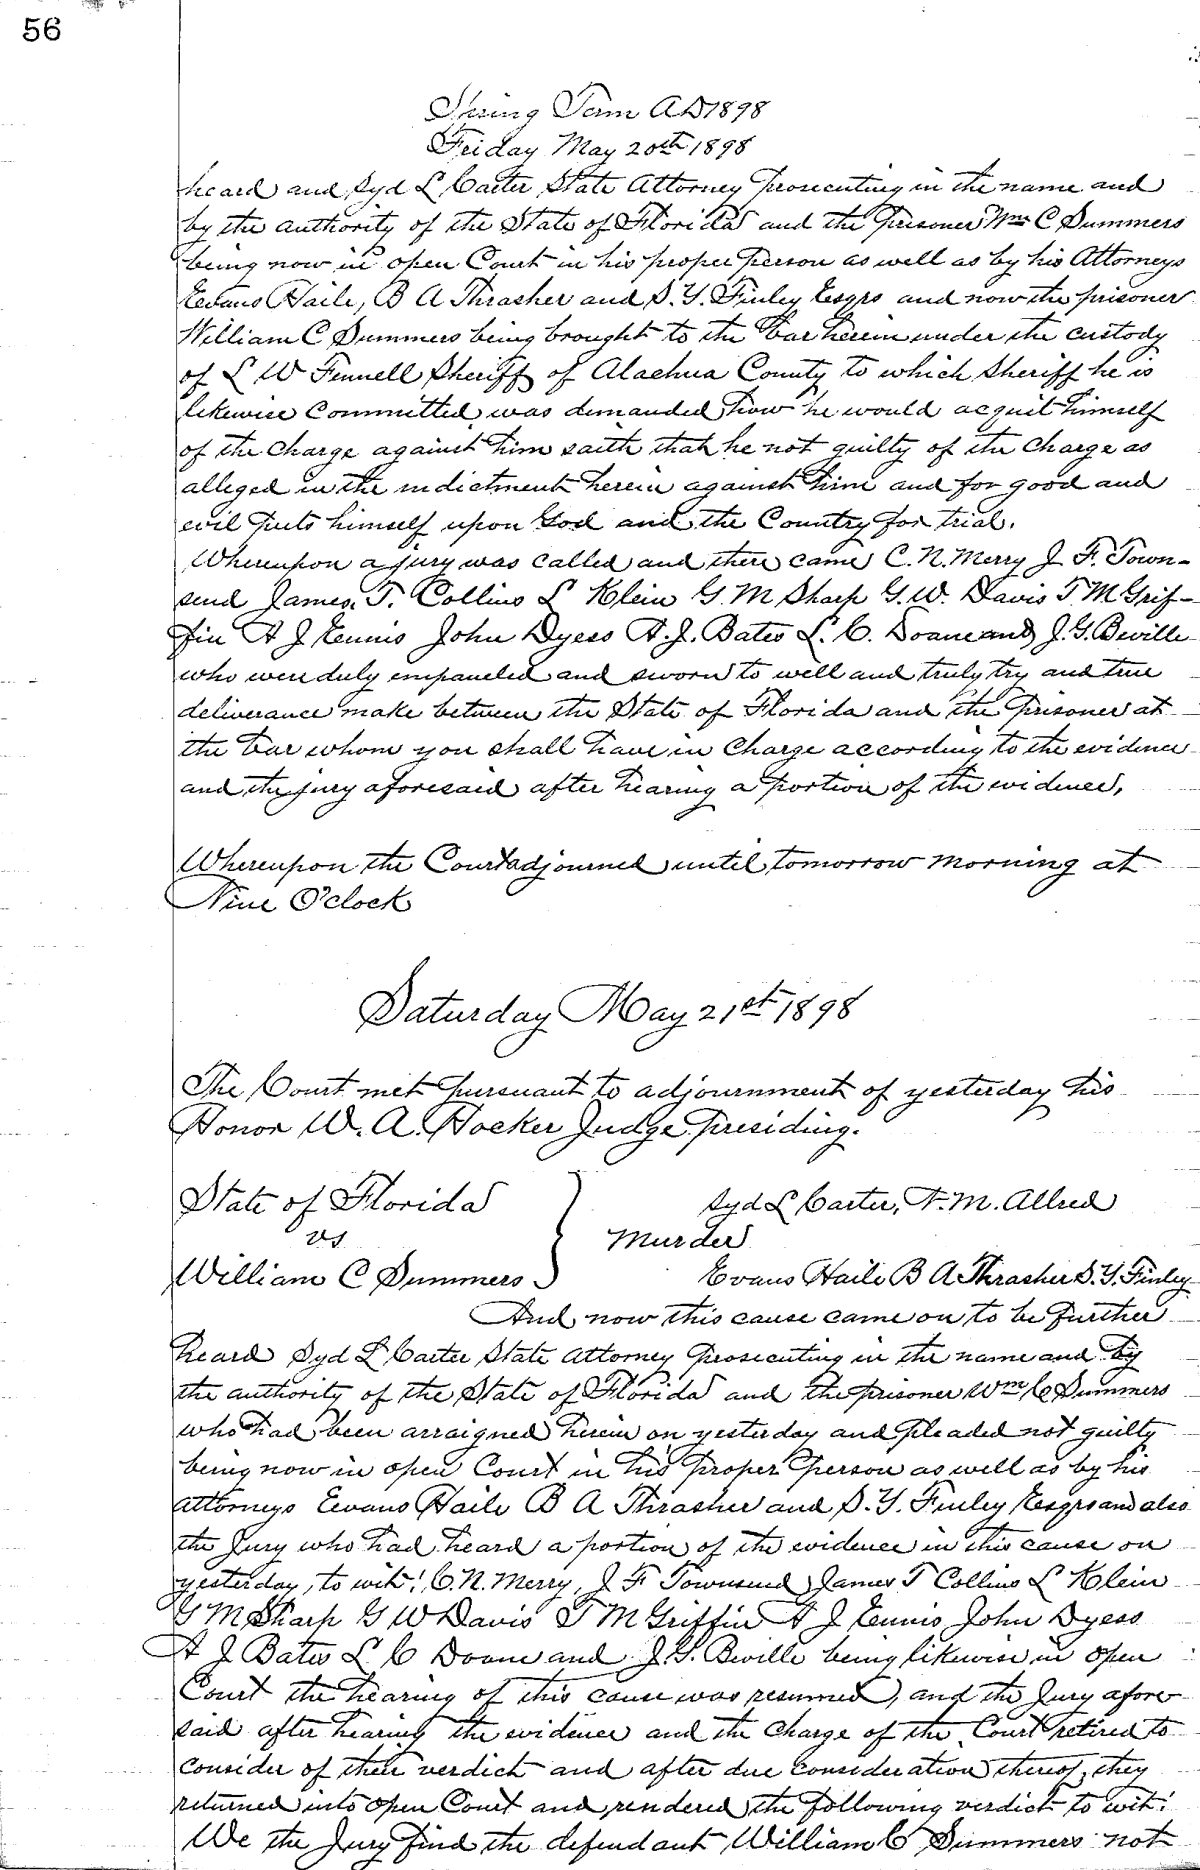 56
Spring Term AD 1898
Friday May 20th 1898
heard and Syd L Carter State Attorney prosecuting in the name and
by the authority of the State of Florida and the prisoner Wm C Summers
being now in open Court in his proper person as well as by his Attorneys
Evans Haile, B A Thrasher and S. Y. Finley Esqrs and now the prisoner
William C Summers being brought to the bar herein under the custody
of L W Fennell Sheriff of Alachua County to which Sheriff he is
likewise Committed was demanded how he would acquit himself
of the charge against him saith that he not guilty of the charge as
alleged in the indictment herein against him and for good and
evil puts himself upon God and the Country for trial.
Whereupon a jury was called and there came C. N. Merry J. F. Town-
send James. T. Collins L Klein G. M Sharp G. W. Davis T M Grif-
fin A J Tennis John Dyess A. J. Bates L. C. Doane and J. G. Beville
who were duly empaneled and sworn to well and truly try and true
deliverance make between the State of Florida and the prisoner at
the bar whom you shall have in charge according to the evidence
and the jury aforesaid after hearing a portion of the evidence,
Whereupon the Court adjourned until tomorrow morning at
Nine O'clock
Saturday May 21st 1898
The Court met pursuant to adjournment of yesterday his
Honor W. A. Hocker Judge presiding.
State of Florida Syd L Carter, A. M. Allred
vs Murder
William C Summers Evans Haile B A Thrasher S. Y. Finley
And now this cause came on to be further
heard Syd L Carter State Attorney prosecuting in the name and by
the authority of the State of Florida and the prisoner Wm C Summers
who had been arraigned herein on yesterday and pleaded not guilty
being now in open Court in his proper person as well as by his
attorneys Evans Haile B A Thrasher and S. Y. Finley Esqrs and also
the Jury who had heard a portion of the evidence in this cause on
yesterday, to wit: C. N. Merry, J F Townsend, James T Collins L Klein
G M Sharp G W Davis T M Griffin A J Tennis John Dyess
A J Bates L C Doane and J. G. Beville being likewise in open
Court the hearing of this cause was resumed, and the Jury afore-
said after hearing the evidence and the charge of the Court retired to
consider of their verdict and after due consideration thereof, they
returned into open Court and rendered the following verdict to wit:
We the Jury find the defendant William C Summers not